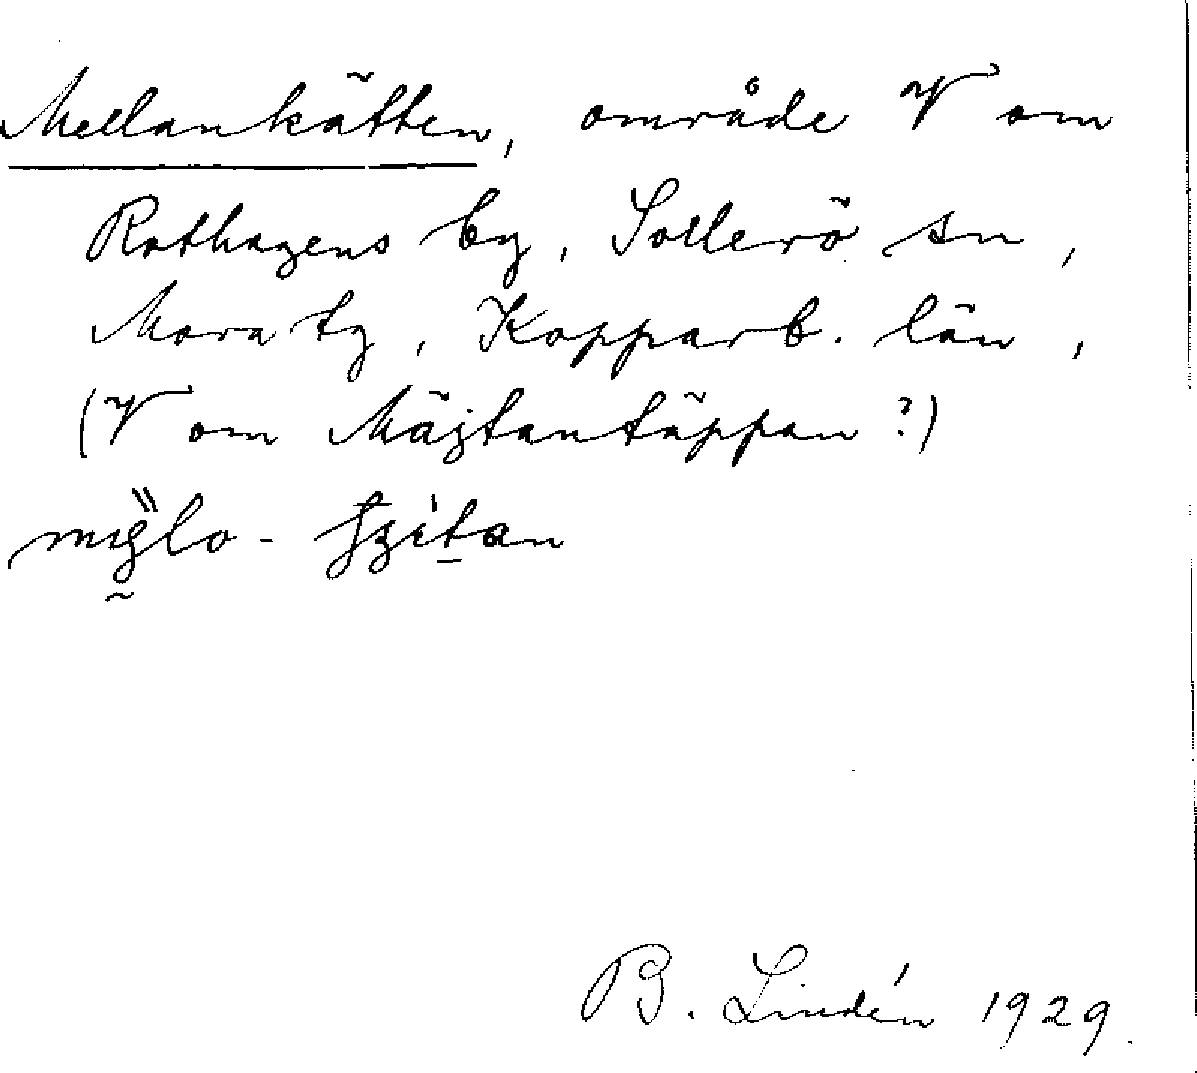 Mellankätten, område V om
Rothagens by, Sollerö sn,
Mora tg, Kopparb. län,
(V om Mäjtantäppan?)
B. Lindén 1929.